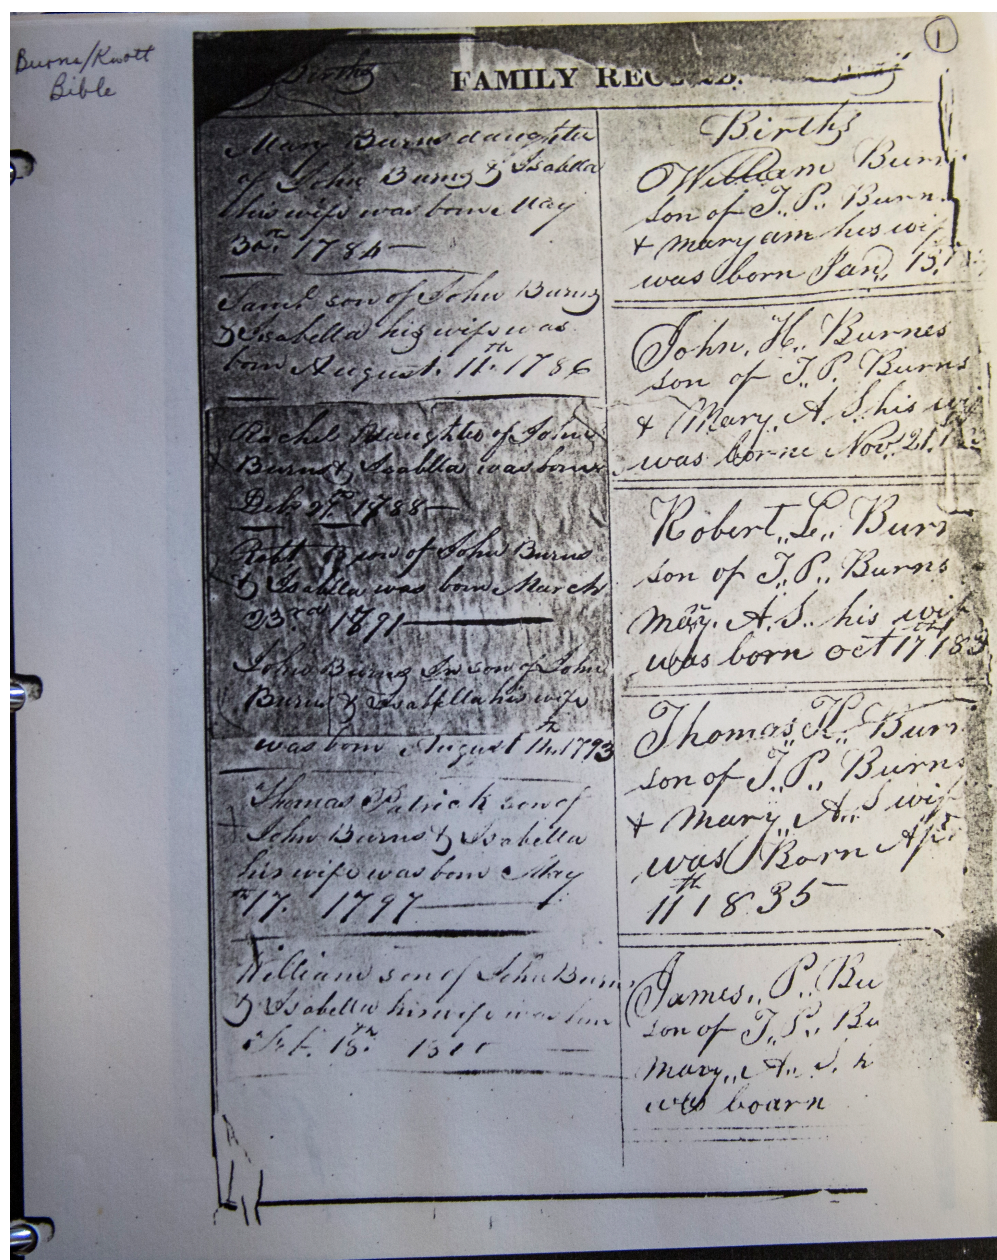 Burns/Knott
Bible
1
Births
FAMILY RECORD.
Mary Burns daughter
of John Burns & Isabella
his wife was borne May
30th 1784
Saml son of John Burns
& Isabella his wife was
born August 11th 1786
Rachel daughter of John
Burns & Isablla was born
1788
Robt son of John Burns
& Isablla was born March
23rd 1791
John Burns Jnr son of John
Burns & Isabella his wife
was born August 1793
Thomas Patrick son of
John Burns & Isabella
his wife was born May
17th 1797
William son of John Burns
& Isabella his wife was born
18th
Births
William Burn
son of T,, P,, Burn
& maryam his wif
was born Jan,, 15,
John,, H,, Burnes
son of T,, P,, Burns
& Mary,, A,, S,, his wif
was borne Nov,, 21,
Robert,, L,, Burn
son of T,, P,, Burns
mary,, A,, S,, his wif
was born oct 17th 183
Thomas,, H,, Burn
son of T,, P,, Burns
& Mary,, A,, S wif
was Born Apr
11th 1835
James,, P,, Bu
son of T,, P,, Bu
mary,, A,, S,, h
was boarn